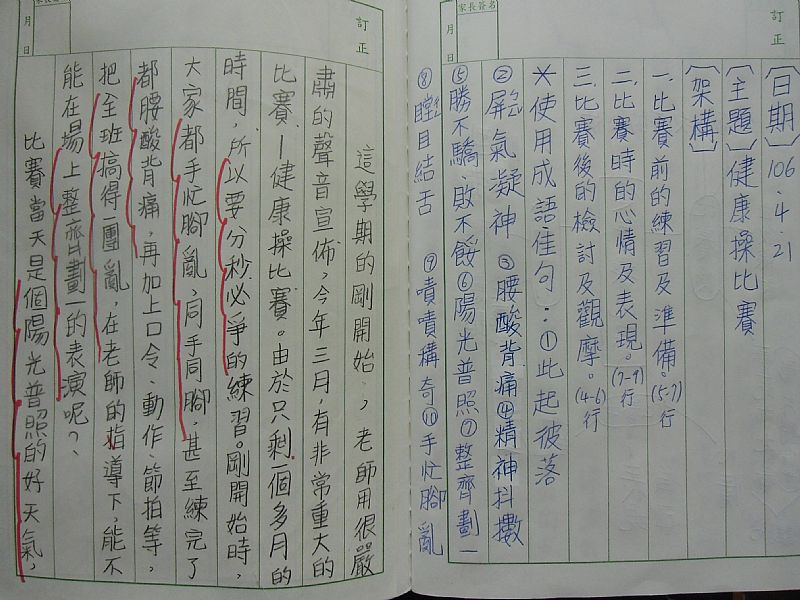 訂正
家長簽名
月 日
〔日期〕106.4.21
〔主題〕健康操比賽
〔架構〕
一.比賽前的練習及準備。(5-7)行
二.比賽時的心情及表現。(7-9)行
三.比賽後的檢討及觀摩。(4-6)行
*使用成語佳句:①此起彼落
②屏氣凝神 ③腰酸背痛④精神抖擻
⑤勝不驕、敗不餒⑥陽光普照⑦整齊劃一
⑧瞠目結舌 ⑨嘖嘖構奇⑩手忙腳亂
訂正
家長簽名
月 日
這學期的剛開始,老師用很嚴
肅的聲音宣佈,今年三月,有非常重大的
比賽—健康操比賽。由於只剩一個多月的
時間,所以要分秒必爭的練習。剛開始時,
大家都手忙腳亂、同手同腳,甚至練完了
都腰酸背痛,再加上口令、動作、節拍等,
把全班搞得一團亂,在老師的指導下,能不
能在場上整齊劃一的表演呢?、
比賽當天是個陽光普照的好天氣,